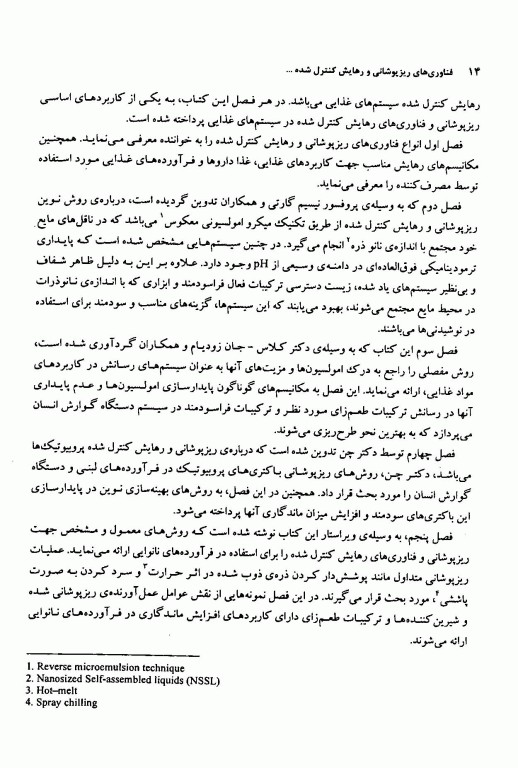 ۱۴ فناوری‌های ریزپوشانی و رهایش کنترل شده ...
رهایش کنترل شده سیستم‌های غذایی می‌باشد. در هر فصل این کتاب، به یکی از کاربردهای اساسی
ریزپوشانی و فناوری‌های رهایش کنترل شده در سیستم‌های غذایی پرداخته شده است.
فصل اول انواع فناوری‌های ریزپوشانی و رهایش کنترل شده را به خواننده معرفی می‌نماید. همچنین
مکانیسم‌های رهایش مناسب جهت کاربردهای غذایی، غذا داروها و فرآورده‌های غذایی مورد استفاده
توسط مصرف‌کننده را معرفی می‌نماید.
فصل دوم که به وسیله‌ی پروفسور نیسیم گارتی و همکاران تدوین گردیده است، درباره‌ی روش نوین
ریزپوشانی و رهایش کنترل شده از طریق تکنیک میکرو امولسیونی معکوس۱ می‌باشد که در ناقل‌های مایع
خود مجتمع با اندازه‌ی نانو ذره۲ انجام می‌گیرد. در چنین سیستم‌هایی مشخص شده است که پایداری
ترمودینامیکی فوق‌العاده‌ای در دامنه‌ی وسیعی از pH وجود دارد. علاوه بر این به دلیل ظاهر شفاف
و بی‌نظیر سیستم‌های یاد شده، زیست دسترسی ترکیبات فعال فراسودمند و ابزاری که با اندازه‌ی نانوذرات
در محیط مایع مجتمع می‌شوند، بهبود می‌یابند که این سیستم‌ها، گزینه‌های مناسب و سودمند برای استفاده
در نوشیدنی‌ها می‌باشند.
فصل سوم این کتاب که به وسیله‌ی دکتر کلاس - جان زودیام و همکاران گردآوری شده است،
روش مفصلی را راجع به درک امولسیون‌ها و مزیت‌های آنها به عنوان سیستم‌های رسانش در کاربردهای
مواد غذایی، ارائه می‌نماید. این فصل به مکانیسم‌های گوناگون پایدارسازی امولسیون‌ها و عدم پایداری
آنها در رسانش ترکیبات طعم‌زای مورد نظر و ترکیبات فراسودمند در سیستم دستگاه گوارش انسان
می‌پردازد که به بهترین نحو طرح‌ریزی می‌شوند.
فصل چهارم توسط دکتر چن تدوین شده است که درباره‌ی ریزپوشانی و رهایش کنترل شده پروبیوتیک‌ها
می‌باشد، دکتر چن، روش‌های ریزپوشانی باکتری‌های پروبیوتیک در فرآورده‌های لبنی و دستگاه
گوارش انسان را مورد بحث قرار داد. همچنین در این فصل، به روش‌های بهینه‌سازی نوین در پایدارسازی
این باکتری‌های سودمند و افزایش میزان ماندگاری آنها پرداخته می‌شود.
فصل پنجم، به وسیله‌ی ویراستار این کتاب نوشته شده است که روش‌های معمول و مشخص جهت
ریزپوشانی و فناوری‌های رهایش کنترل شده را برای استفاده در فرآورده‌های نانوایی ارائه می‌نماید. عملیات
ریزپوشانی متداول مانند پوشش‌دار کردن ذره‌ی ذوب شده در اثر حرارت۳ و سرد کردن به صورت
پاششی۴، مورد بحث قرار می‌گیرند. در این فصل نمونه‌هایی از نقش عوامل عمل‌آورنده‌ی ریزپوشانی شده
و شیرین‌کننده‌ها و ترکیبات طعم‌زای دارای کاربردهای افزایش ماندگاری در فرآورده‌های نانوایی
ارائه می‌شوند.
1. Reverse microemulsion technique
2. Nanosized Self-assembled liquids (NSSL)
3. Hot–melt
4. Spray chilling